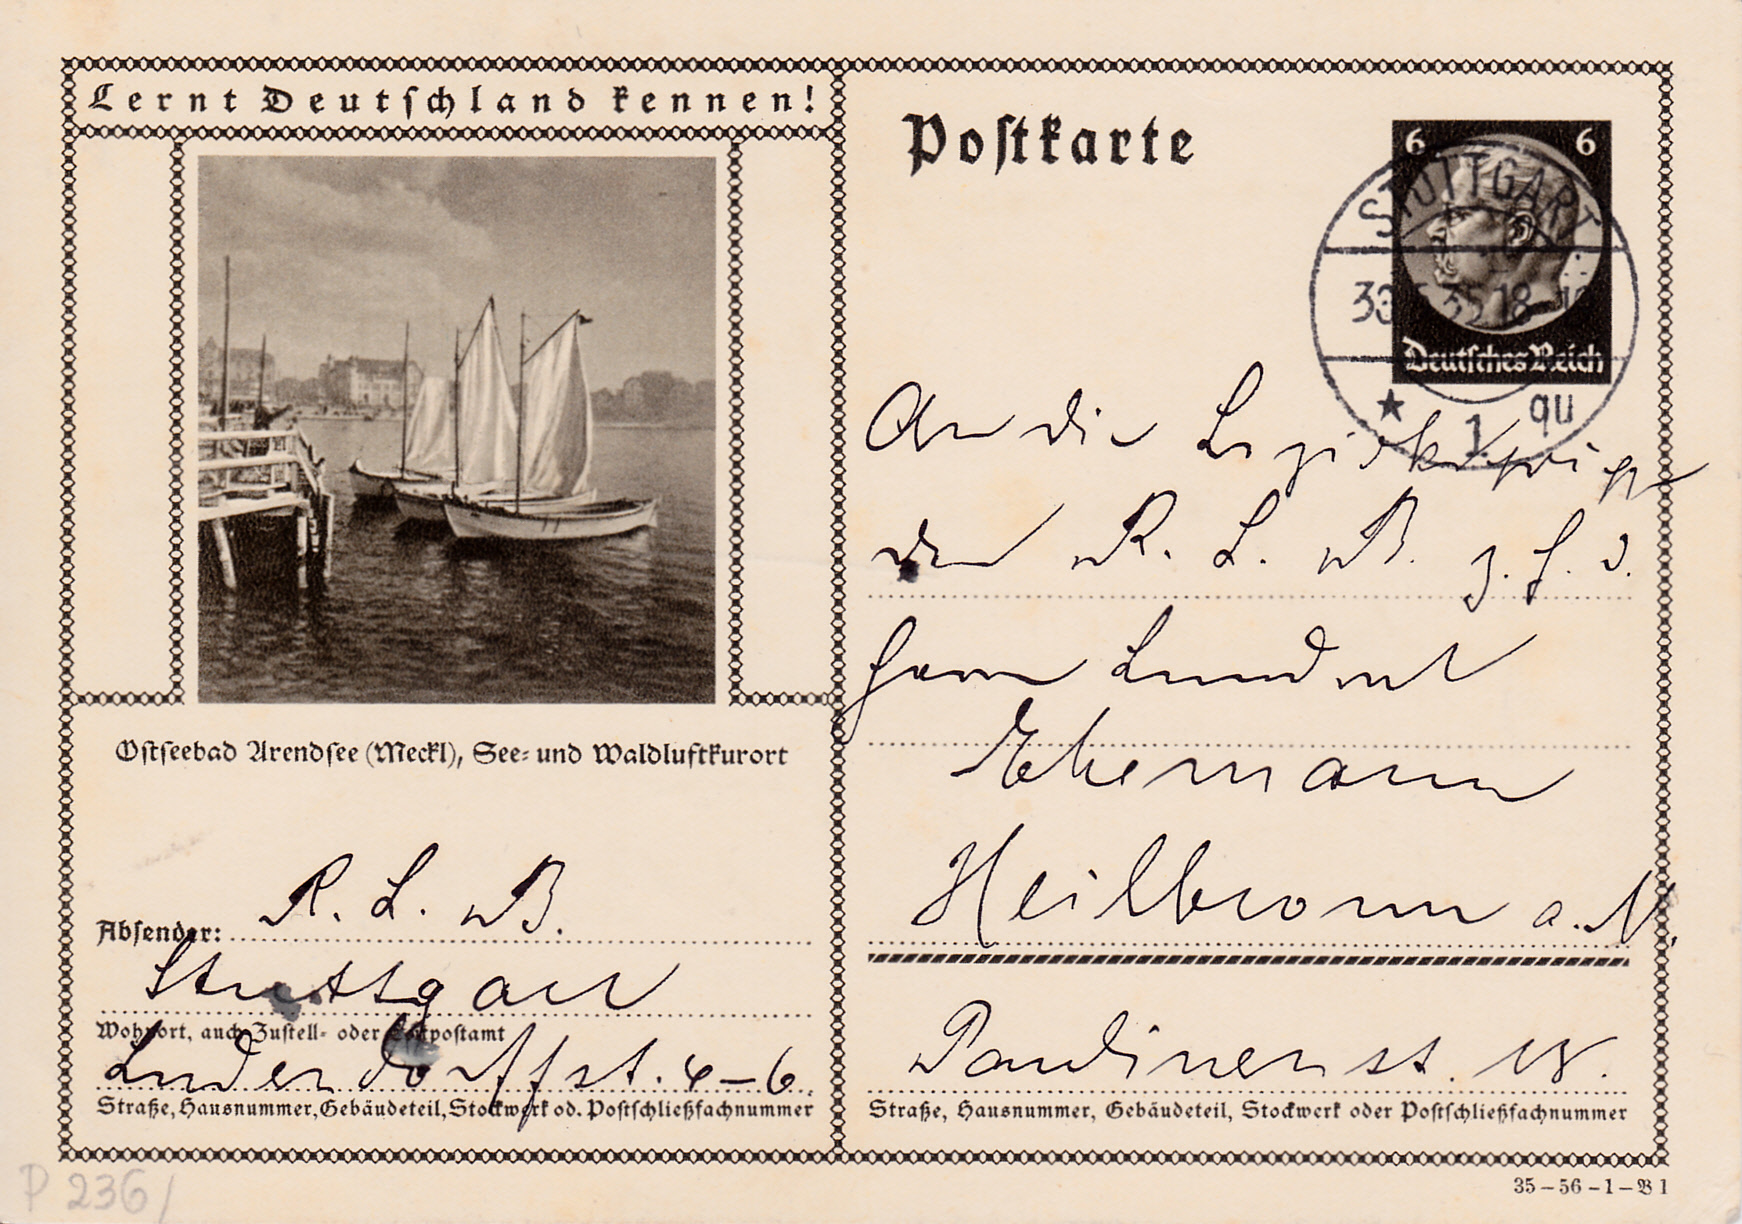 Lernt Deutschland kennen!
Ostseebad Arendsee (Meckl), See- und Waldluftkurort
Absender: R. L. B.
Stuttgart
Wohnort, auch Zustell- oder Leitpostamt
Ludendorffst. 4-6.
Straße, Hausnummer, Gebäudeteil, Stockwerk od. Postschließfachnummer
P 236/
Postkarte
6 6
Deutsches Reich
STUTTGART
35 18
★ 1 qu
An die
R. L. B. z. H. d.
Herrn
Ehemann
Heilbronn a. N.
Paulinenst.
Straße, Hausnummer, Gebäudeteil, Stockwerk oder Postschließfachnummer
35-56-1-B1